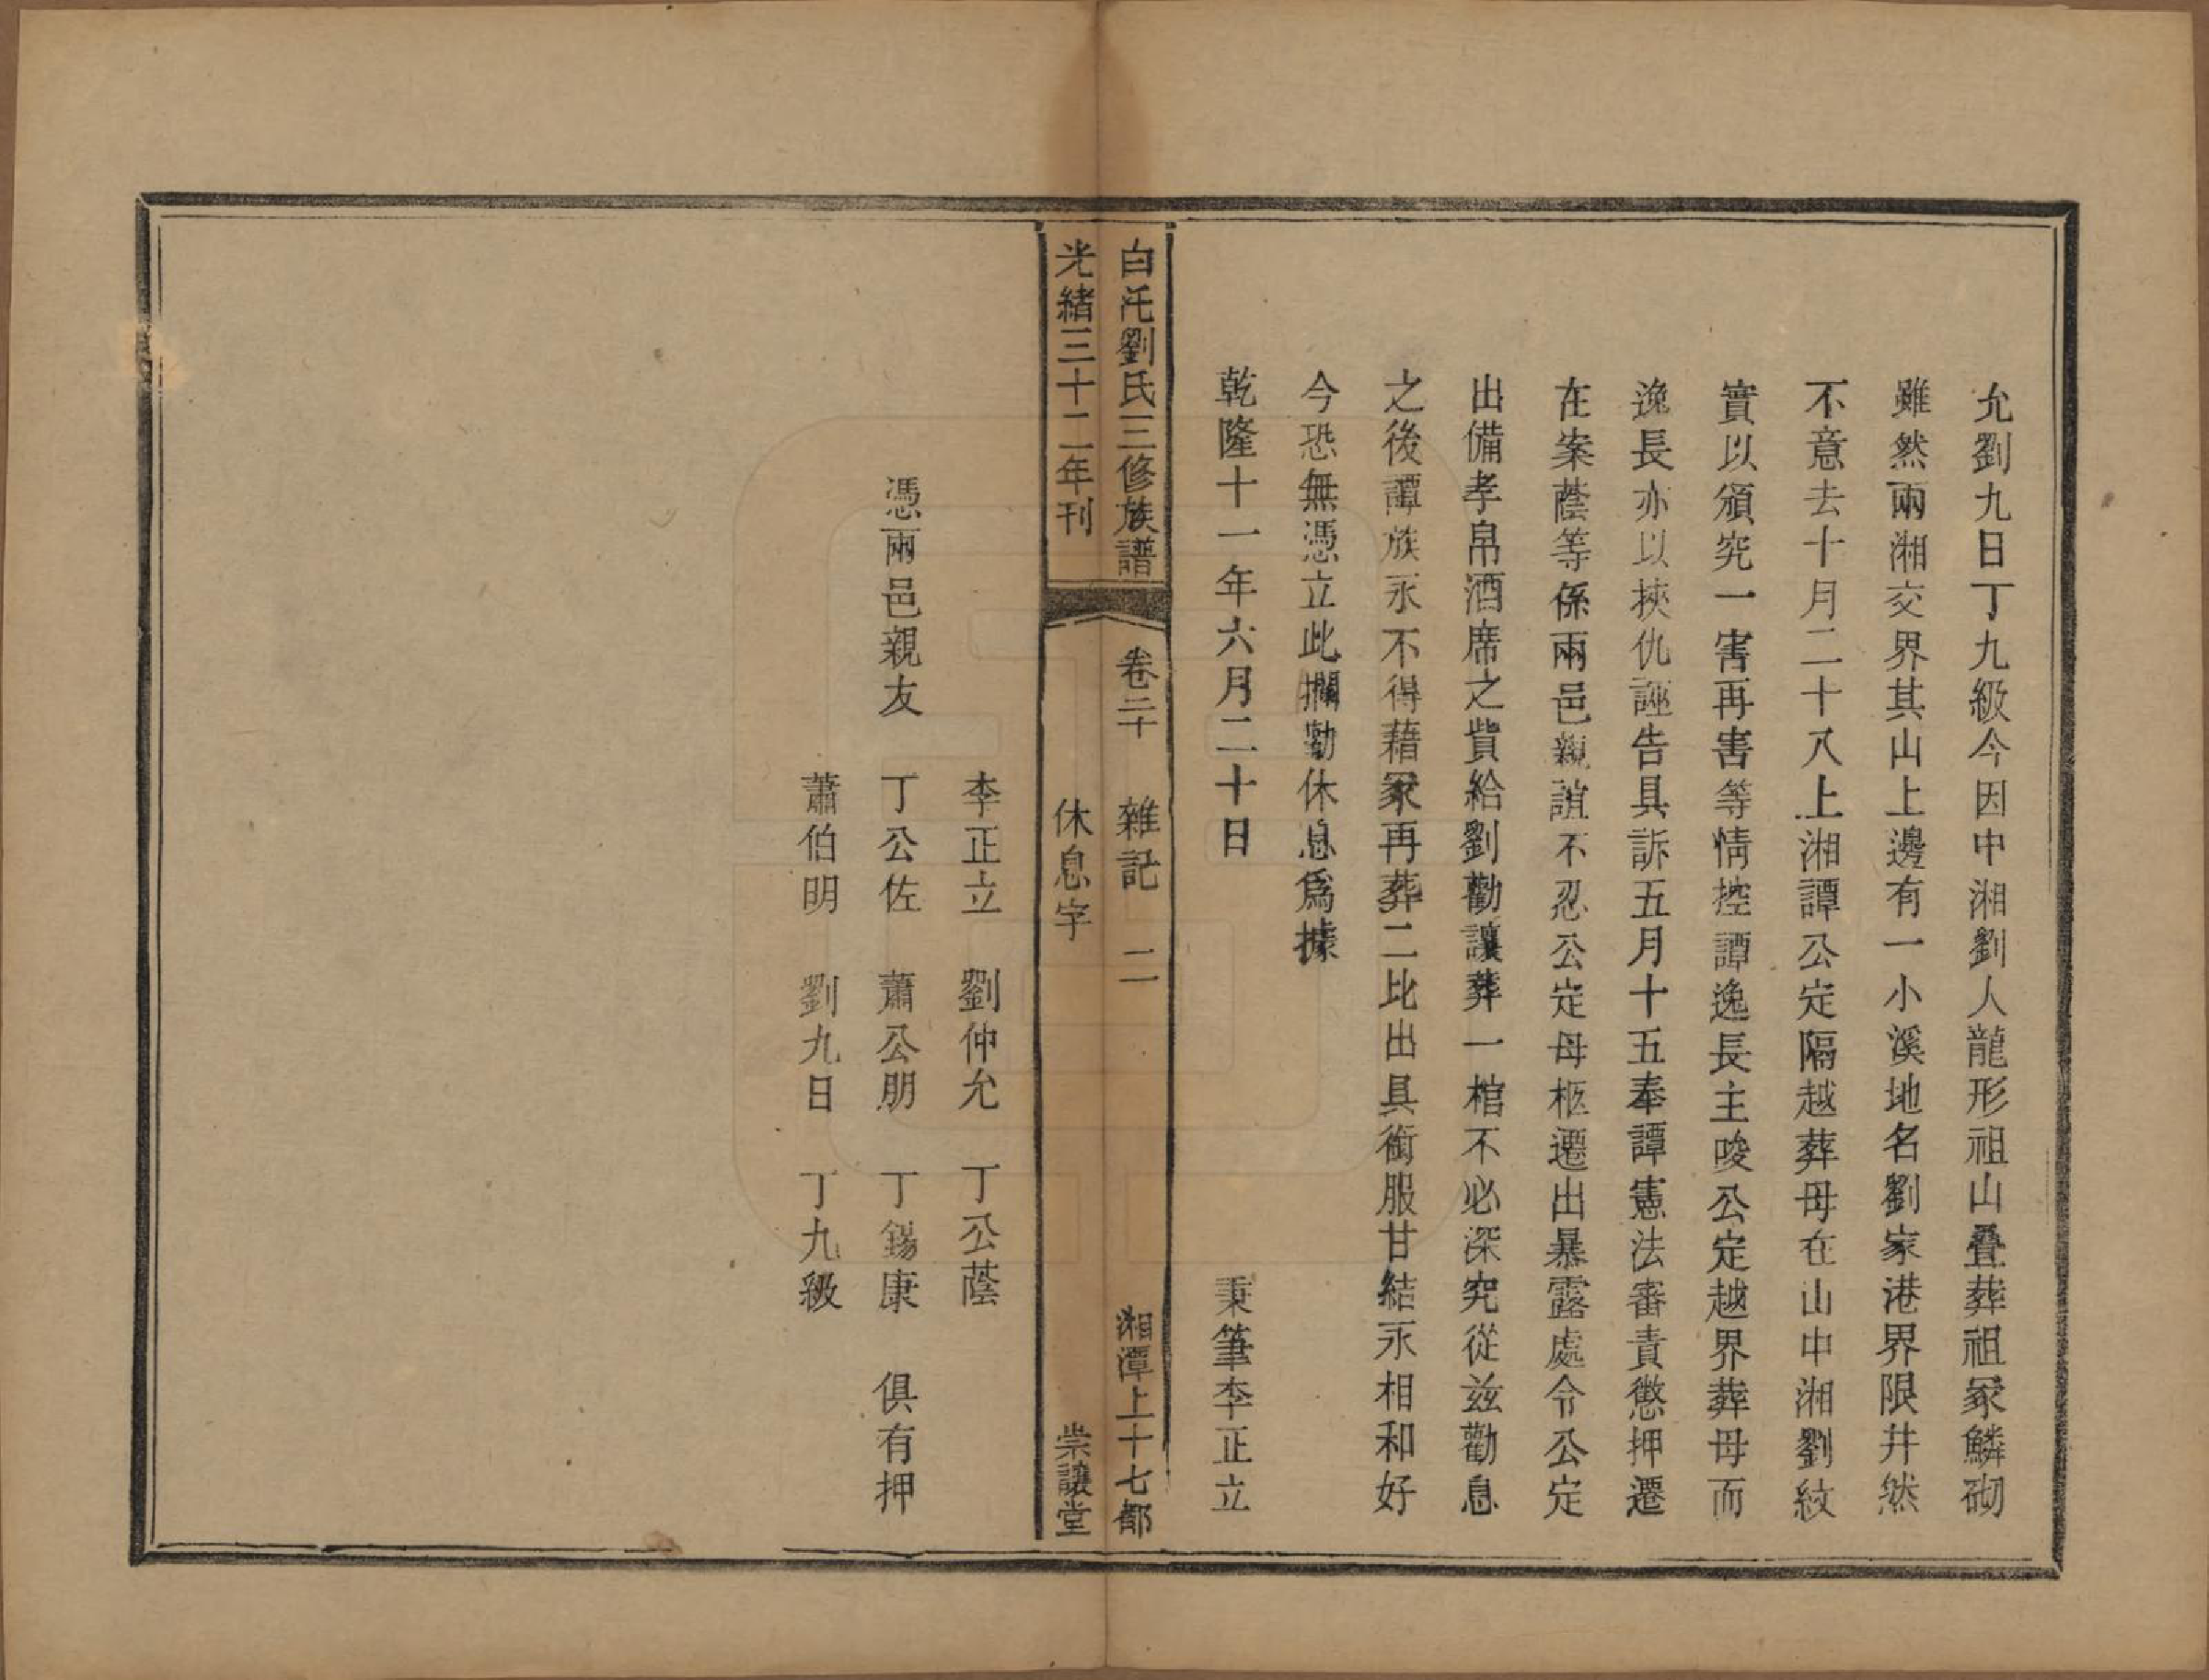 允劉九日丁九級今因中湘劉人龍形祖山叠葬祖冢鱗砌
雖然兩湘交界其山上邊有一小溪地名劉家港界限井然
不意去十月二十八上湘譚公定隔越葬母在山中湘劉紋
實以頒究一害再害等情控譚逸長主唆公定越界葬母而
逸長亦以挾仇誣告具訴五月十五奉譚憲法審責懲押遷
在案蔭等係兩邑親誼不忍公定母柩遷出暴露處令公定
出備孝帛酒席之貲給劉勸讓葬一棺不必深究從玆勸息
之後譚族永不得藉冢再葬二比出具銜服甘結永相和好
今恐無憑立此攔勸休息爲據
乾隆十一年六月二十日 秉筆李正立
白汑劉氏三修族譜 卷二十 雜記 二 湘潭上十七都
光緒三十二年刊 休息字 崇讓堂
李正立 劉仲允 丁公蔭
憑兩邑親友 丁公佐 蕭公朋 丁錫康 俱有押
蕭伯明 劉九日 丁九級